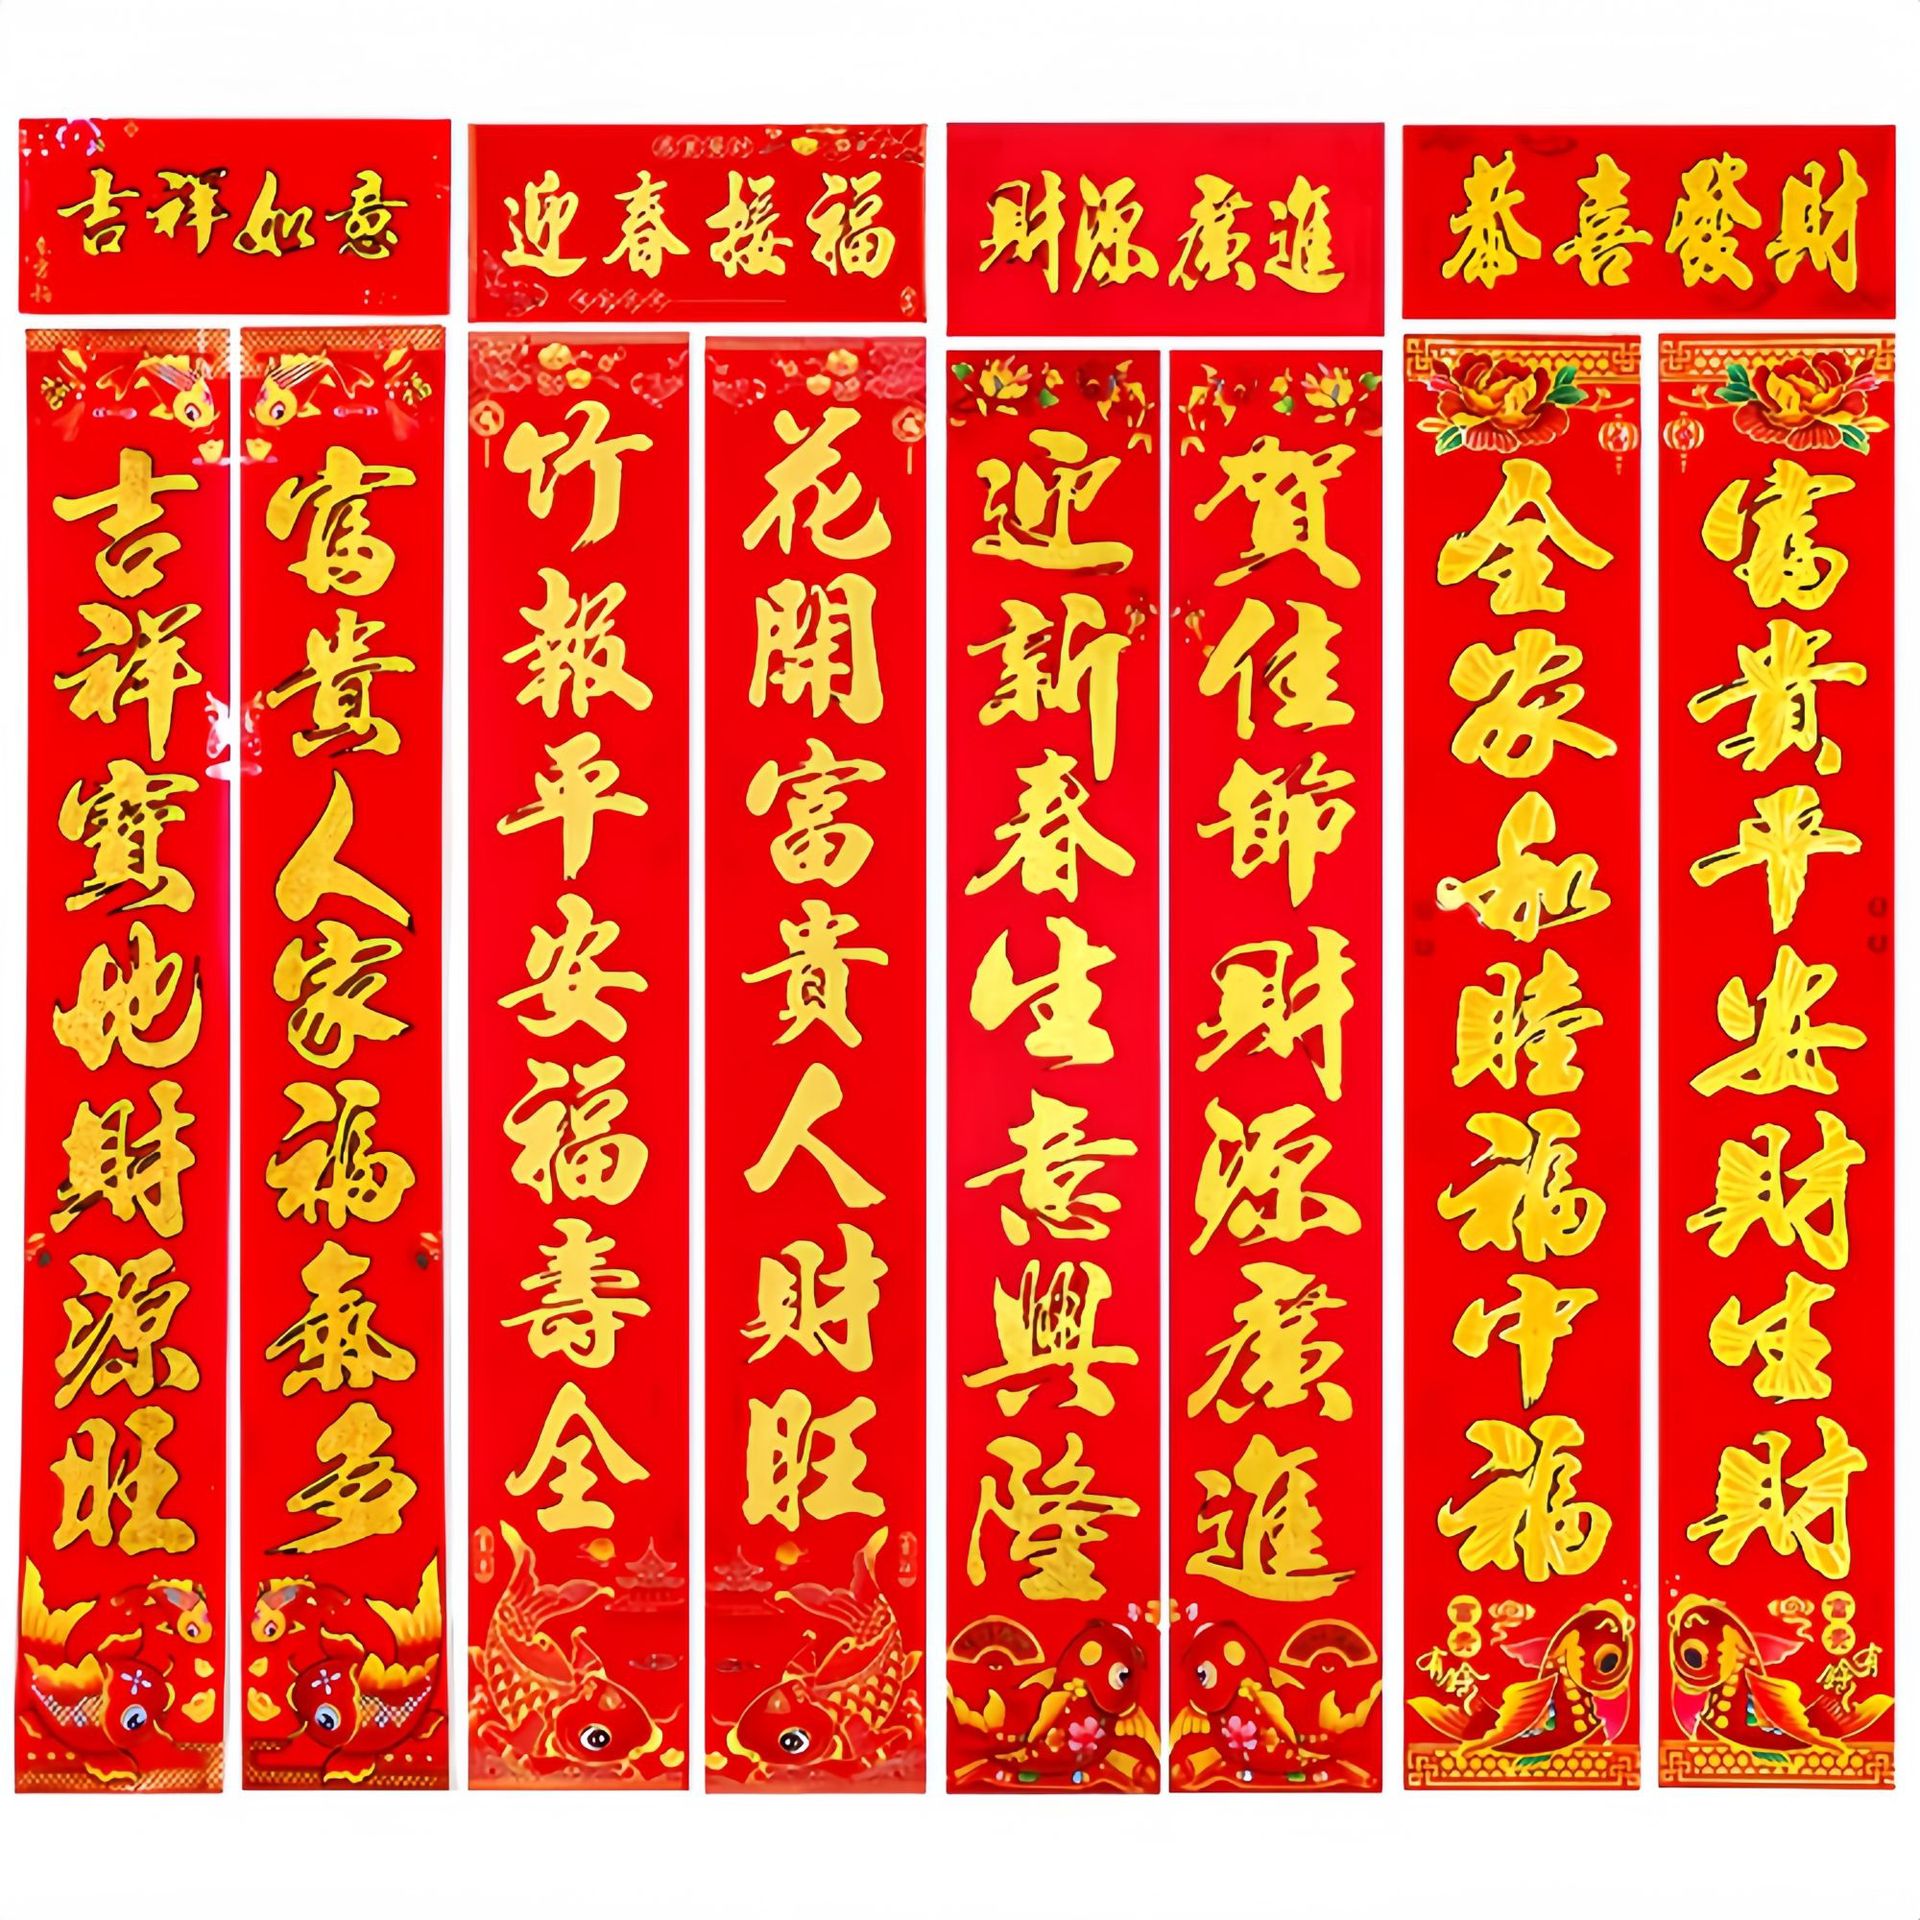 吉祥如意
吉祥寶地財源旺
富貴人家福氣多
迎春接福
竹報平安福壽全
花開富貴人財旺
財源廣進
迎新春生意興隆
賀佳節財源廣進
恭喜發財
全家和睦福中福
富貴平安財生財